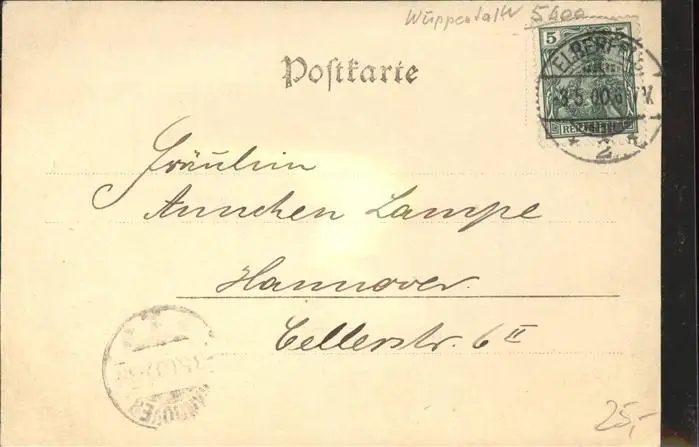 Wuppertal 5600
Postkarte
5 5
ELBERFELD
3.5.00.6-7V.
REICHSPOST
* 2 *
Fräulein
Annchen Lampe
Hannover.
Cellerstr. 6 II
HANNOVER
25,-